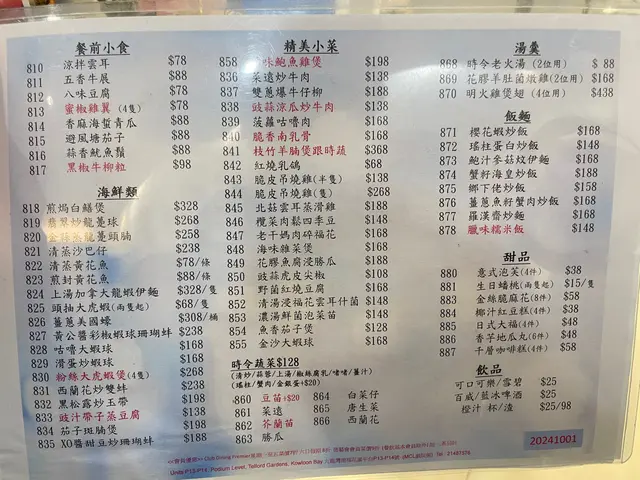 餐前小食
810 涼拌雲耳 $78
811 五香牛展 $88
812 八味豆腐 $78
813 蜜椒雞翼 (4隻) $78
814 香麻海蜇青瓜 $88
815 避風塘茄子 $88
816 薑香魷魚鬚 $88
817 黑椒牛柳粒 $98
海鮮類
818 煎焗白鱔煲 $328
819 翡翠炒龍躉球 $268
820 龍躉頭腩 $258
821 清蒸沙巴仔 $238
822 清蒸黃花魚 $78/條
823 煎封黃花魚 $88/條
824 上湯加拿大龍蝦伊麵 $328/隻
825 頭抽大虎蝦(兩隻起) $68/隻
826 薑蔥美國蠔 $308/桶
827 黃公醬彩椒蝦球珊瑚蚌 $238
828 咕嚕大蝦球 $168
829 滑蛋炒蝦球 $168
830 粉絲大虎蝦煲(4隻) $268
831 西蘭花炒雙蚌 $238
832 黑松露炒玉帶 $238
833 豉汁帶子蒸豆腐 $138
834 茄子斑腩煲 $168
835 XO醬甜豆炒珊瑚蚌 $188
精美小菜
858 味鮑魚雞煲 $198
836 菜遠炒牛肉 $138
837 雙蔥爆牛仔柳 $188
838 豉蒜涼瓜炒牛肉 $138
839 菠蘿咕嚕肉 $168
840 脆香南乳骨 $168
841 枝竹羊腩煲跟時蔬 $368
842 紅燒乳鴿 $68
843 脆皮吊燒雞(半隻) $138
844 脆皮吊燒雞(隻) $268
845 北菇雲耳蒸滑雞 $188
846 欖菜肉鬆四季豆 $148
847 老干媽肉碎福花 $168
848 海味雜菜煲 $168
849 花膠魚腐浸勝瓜 $188
850 豉蒜虎皮尖椒 $108
851 野菌紅燒豆腐 $168
852 清湯浸福花雲耳什菌 $148
853 濃湯鮮菌泡菜苗 $148
854 魚香茄子煲 $128
855 金沙大蝦球 $168
時令蔬菜$128
(清炒/蒜蓉/上湯/椒絲腐乳/啫啫/薑汁)
(瑤柱/蟹肉/金銀蛋+$20)
860 豆苗+$20 864 白菜仔
861 菜遠 865 唐生菜
862 芥蘭苗 866 西蘭花
863 勝瓜
湯羹
868 時令老火湯(2位用) $ 88
869 花膠羊肚菌燉雞(2位用) $168
870 明火雞煲翅 (4位用) $438
飯麵
871 櫻花蝦炒飯 $168
872 瑤柱蛋白炒飯 $168
873 鮑汁麥菇炆伊麵 $168
874 蟹籽海皇炒飯 $168
875 鄉下佬炒飯 $158
876 薑蔥魚籽蟹肉炒飯 $168
877 羅漢齋炒麵 $168
878 臘味糯米飯 $148
甜品
880 意式泡芙(4件) $38
881 生日蟠桃(兩隻起) $15/隻
883 金絲脆麻花(8件) $58
884 椰汁紅豆糕(4件) $38
885 日式大福(4件) $48
886 香芋地瓜丸(6件) $48
887 千層咖啡糕(4件) $58
飲品
可口可樂/雪碧 $25
百威/藍冰啤酒 $25
橙汁 杯/渣 $25/98
20241001
Units P13-P14, Podium Level, Telford Gardens, Kowloon Bay